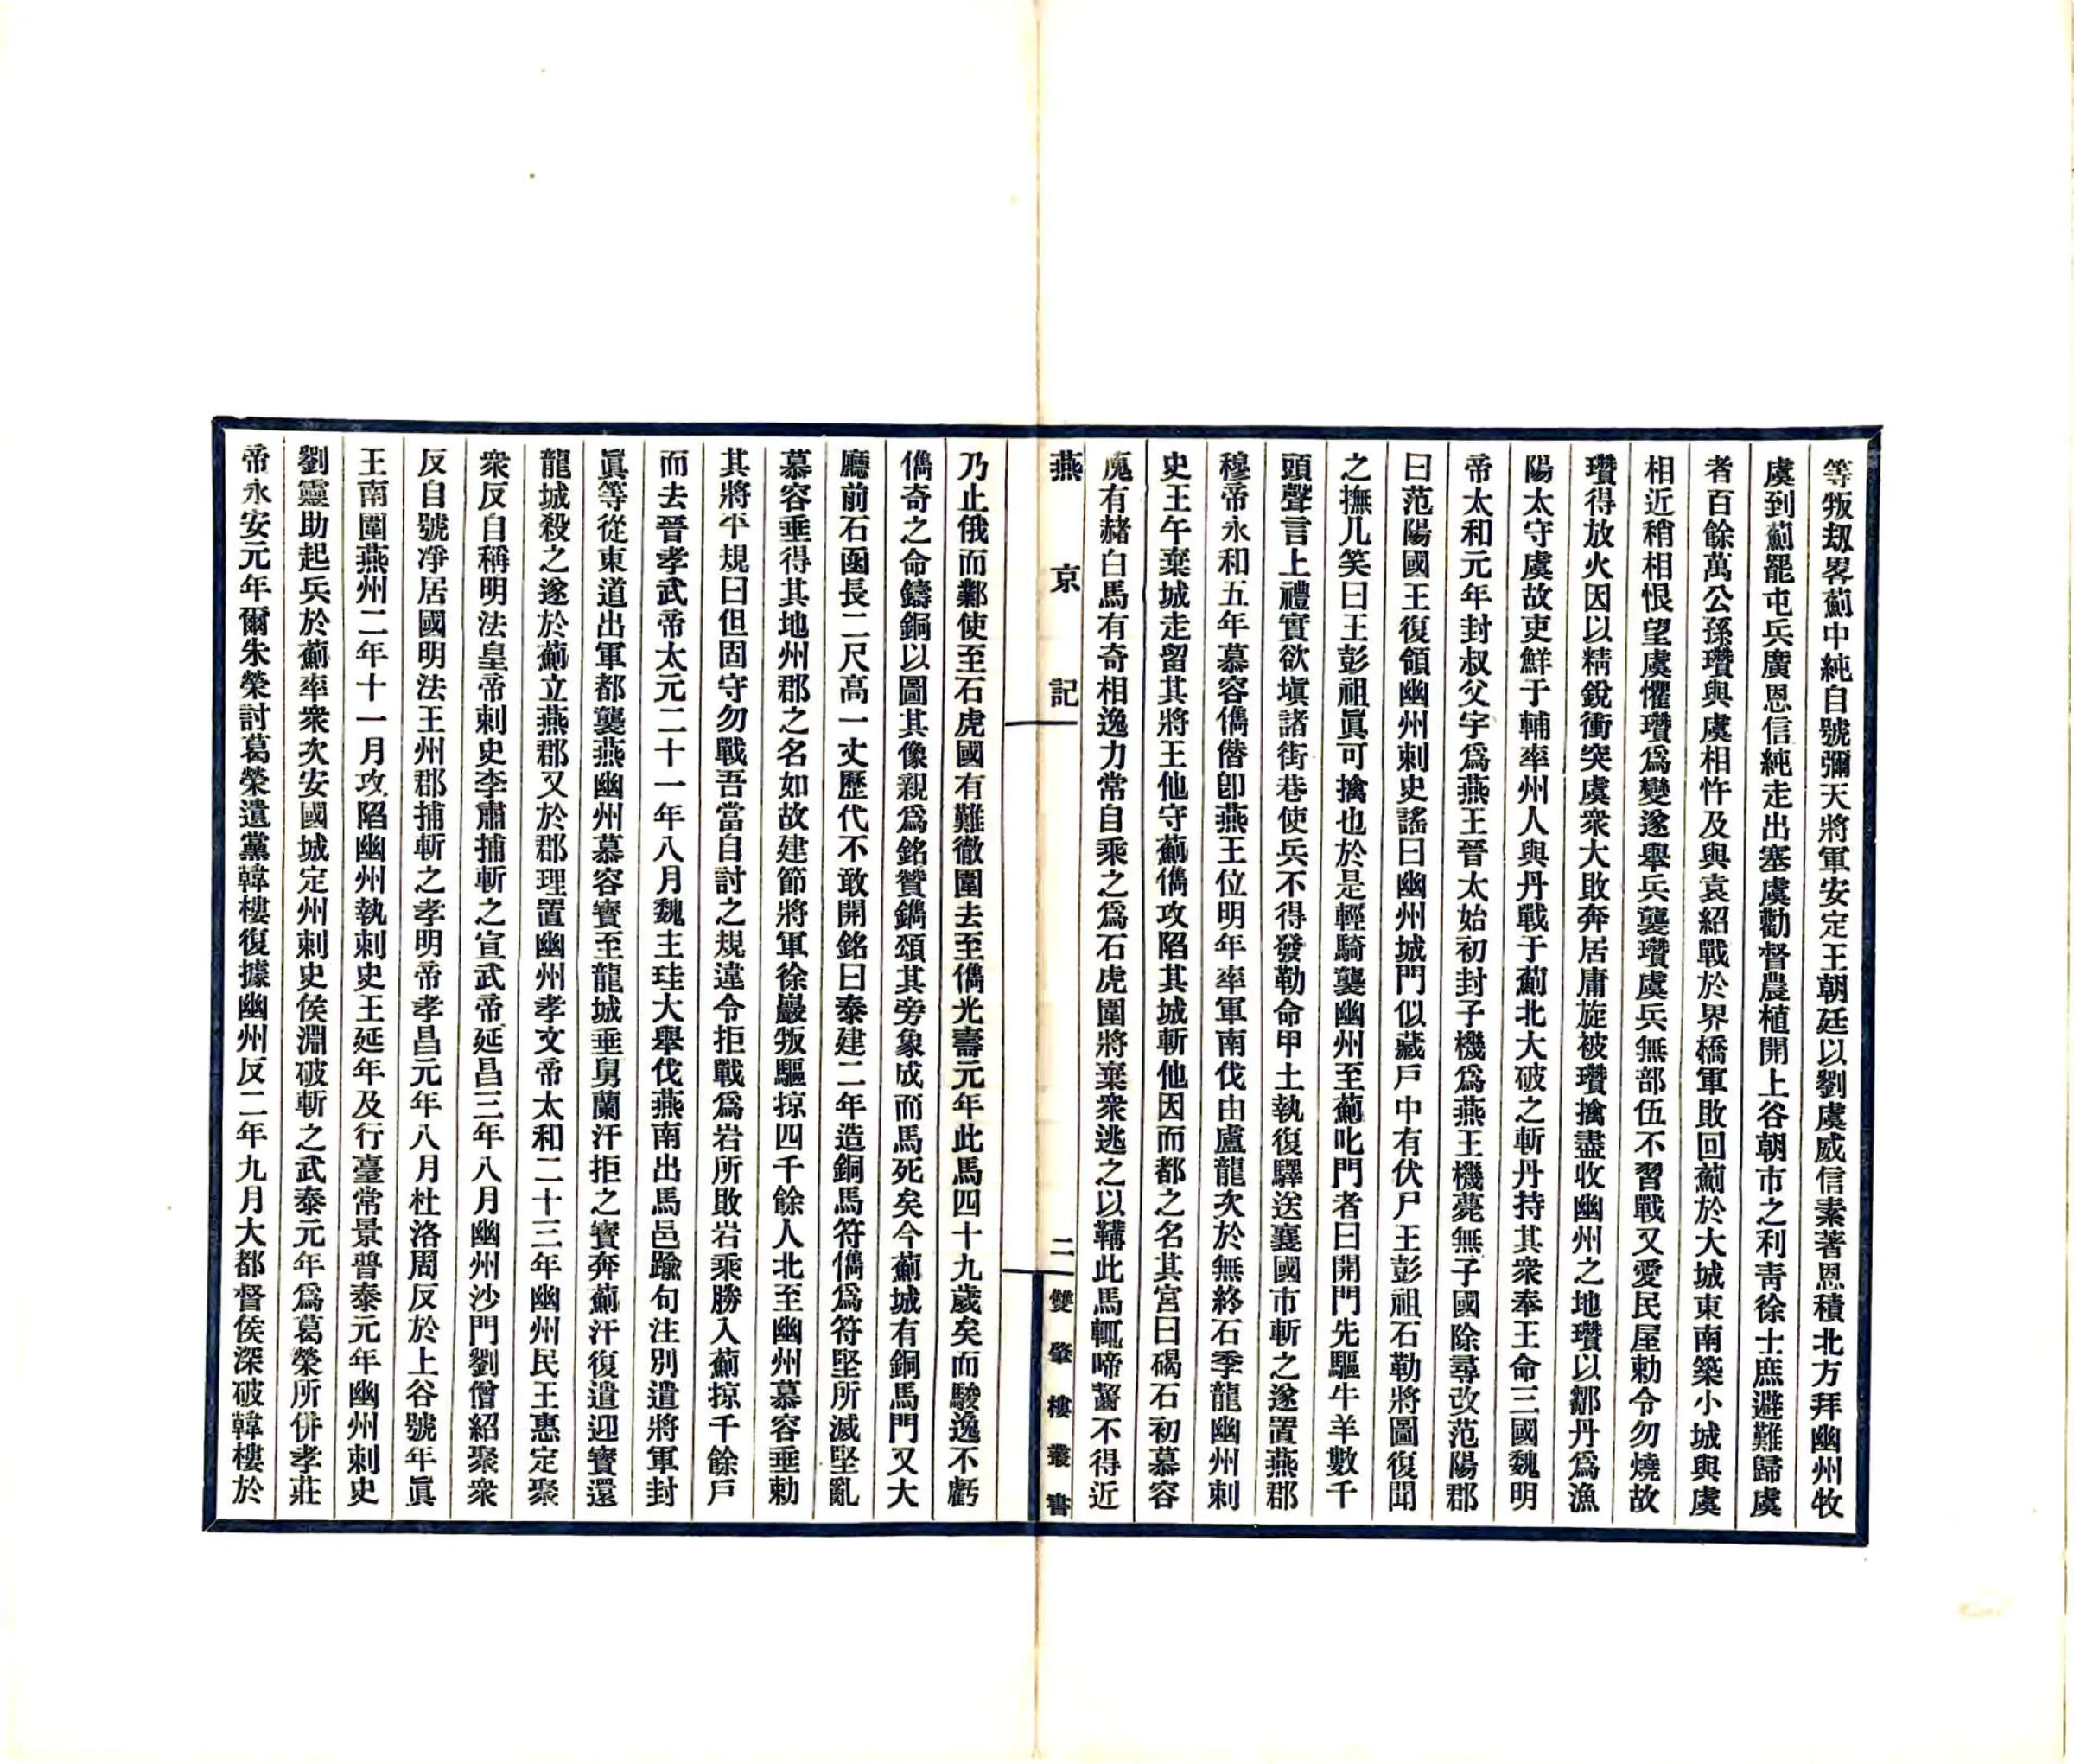 等叛刼畧薊中純自號彌天將軍安定王朝廷以劉虞威信素著恩積北方拜幽州牧
虞到薊罷屯兵廣恩信純走出塞虞勸督農植開上谷胡市之利靑徐士庶避難歸虞
者百餘萬公孫瓚與虞相忤及與袁紹戰於界橋軍敗回薊於大城東南築小城與虞
相近稍相恨望虞懼瓚爲變遂舉兵襲瓚虞兵無部伍不習戰又愛民屋勅令勿燒故
瓚得放火因以精銳衝突虞衆大敗奔居庸旋被瓚擒盡收幽州之地瓚以鄒丹爲漁
陽太守虞故吏鮮于輔率州人與丹戰于薊北大破之斬丹持其衆奉王命三國魏明
帝太和元年封叔父宇爲燕王晉太始初封子機爲燕王機薨無子國除尋改范陽郡
曰范陽國王復領幽州刺史謠曰幽州城門似藏戶中有伏尸王彭祖石勒將圖復聞
之撫几笑曰王彭祖眞可擒也於是輕騎襲幽州至薊叱門者曰開門先驅牛羊數千
頭聲言上禮實欲塡諸街巷使兵不得發勒命甲士執復驛送襄國市斬之遂置燕郡
穆帝永和五年慕容儁僭卽燕王位明年率軍南伐由盧龍次於無終石季龍幽州刺
史王午棄城走留其將王他守薊儁攻陷其城斬他因而都之名其宮曰碣石初慕容
廆有赭白馬有奇相逸力常自乘之爲石虎圍將棄衆逃之以鞲此馬輒啼齧不得近
燕京記
二
雙肇樓叢書
乃止俄而鄴使至石虎國有難徹圍去至儁光壽元年此馬四十九歲矣而駿逸不虧
儁奇之命鑄銅以圖其像親爲銘贊鐫頌其旁象成而馬死矣今薊城有銅馬門又大
廳前石凾長二尺高一丈歷代不敢開銘曰泰建二年造銅馬符儁爲符堅所滅堅亂
慕容垂得其地州郡之名如故建節將軍徐巖叛驅掠四千餘人北至幽州慕容垂勅
其將平規曰但固守勿戰吾當自討之規違令拒戰爲岩所敗岩乘勝入薊掠千餘戶
而去晉孝武帝太元二十一年八月魏主珪大舉伐燕南出馬邑踰句注別遣將軍封
眞等從東道出軍都襲燕幽州慕容寳至龍城垂舅蘭汗拒之寳奔薊汗復遣迎寳還
龍城殺之遂於薊立燕郡又於郡理置幽州孝文帝太和二十三年幽州民王惠定聚
衆反自稱明法皇帝刺史李肅捕斬之宣武帝延昌三年八月幽州沙門劉僧紹聚衆
反自號凈居國明法王州郡捕斬之孝明帝孝昌元年八月杜洛周反於上谷號年眞
王南圍燕州二年十一月攻陷幽州執刺史王延年及行臺常景普泰元年幽州刺史
劉靈助起兵於薊率衆次安國城定州刺史侯淵破斬之武泰元年爲葛榮所併孝莊
帝永安元年爾朱榮討葛榮遣黨韓樓復據幽州反二年九月大都督侯深破韓樓於